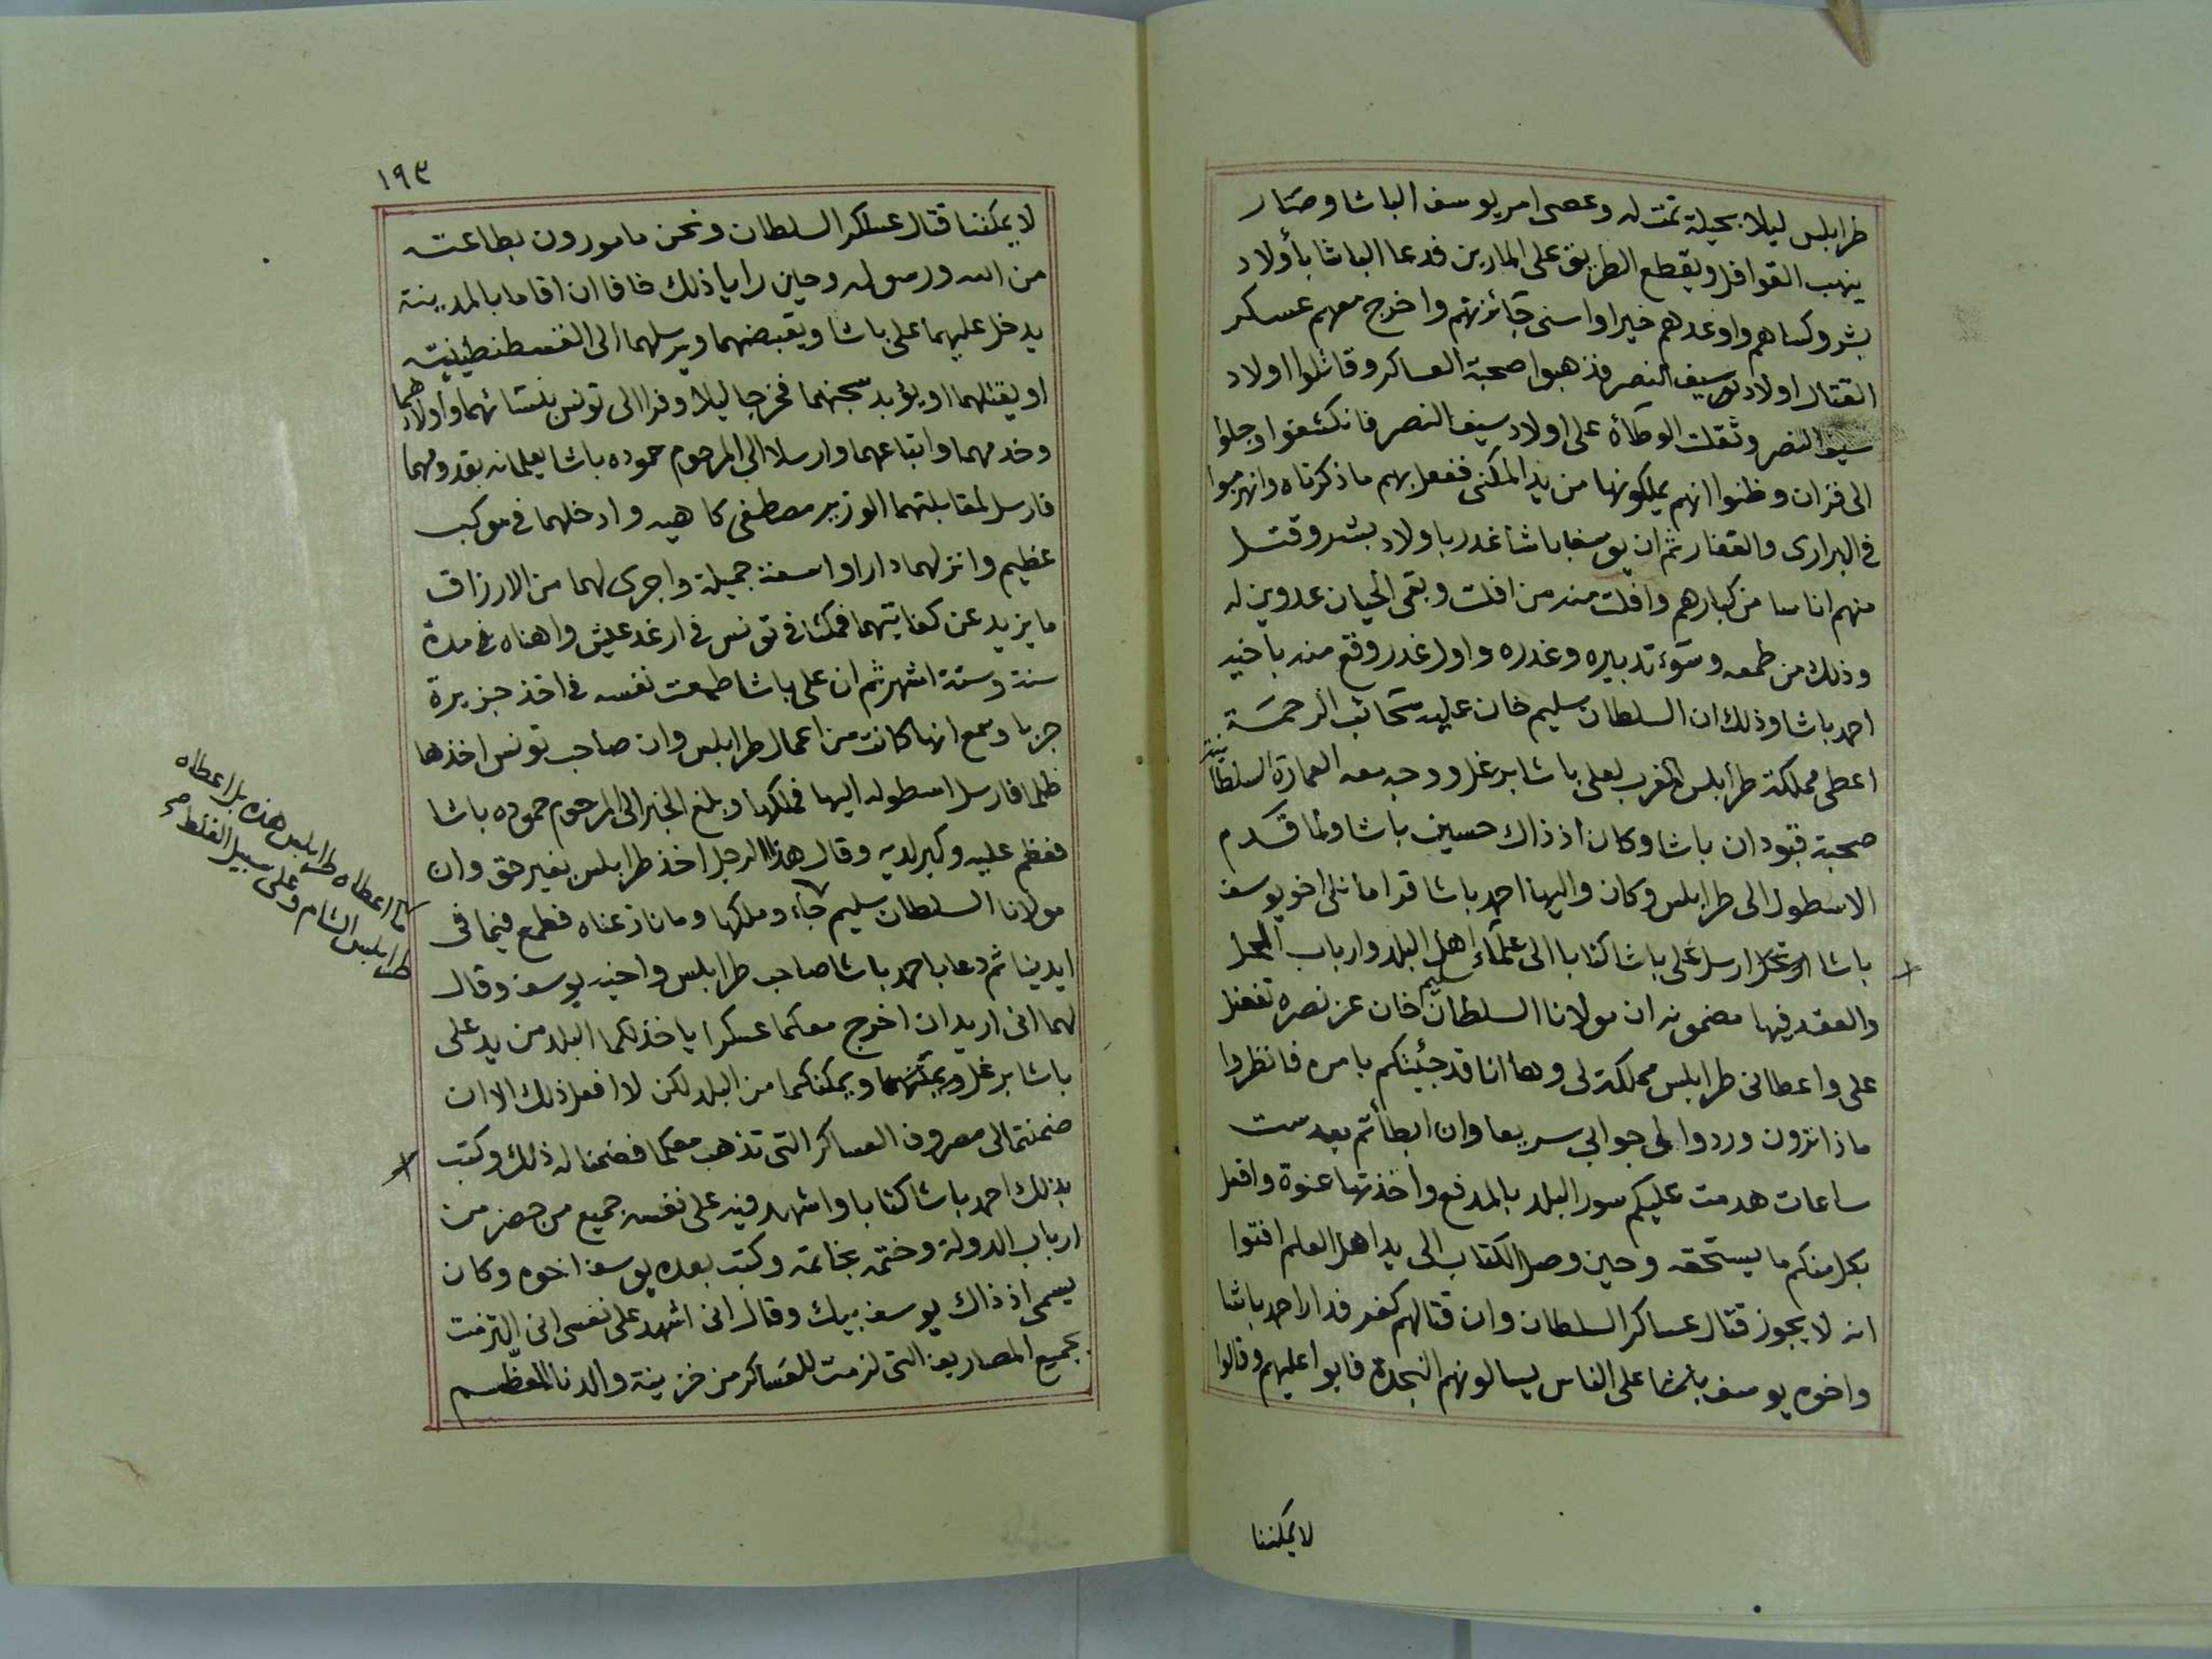 طرابلس ليلا بحيلة تمت له وعصى امر يوسف الباشا وصار
ينهب القوافل ويقطع الطريق على المارين فدعا الباشا بأولاد
بشر وكساهم واوعدهم خيرا واسنى جائزتهم واخرج معهم عسكر
القتال اولاد سيف النصر فذهبوا صحبة العساكر وقاتلوا اولاد
سيف النصر وثقلت الوطأة على اولاد سيف النصر فانكشفوا وجلوا
الى فزان وظنوا انهم يملكونها من يد المكنى ففعل بهم ما ذكرناه وانهزموا
في البرارى والقفار ثم ان يوسف باشا غدر باولاد بشر وقتل
منهم اناسا من كبارهم وافلت منه من افلت وبقى الحيان عدوين له
وذلك من طمعه وسوء تدبيره وغدره واول غدر وقع منه باخيه
احمد باشا وذلك ان السلطان سليم خان عليه سحائب الرحمة
اعطى مملكة طرابلس الغرب لعلى باشا برغل ووجه معه العمارة السلطانية
صحبة قبودان باشا وكان اذ ذاك حسين باشا ولما قدم
الاسطول الى طرابلس وكان واليها احمد باشا قرامانلى اخو يوسف
باشا ارسل على باشا كتابا الى علماء اهل البلد وارباب الحل
والعقد فيها مضمونه ان مولانا السلطان سليم خان عز نصره تفضل
على واعطانى طرابلس مملكة لى وها انا قد جئيتكم بامره فانظروا
ماذا ترون وردوا لى جوابى سريعا وان ابطأتم بعد ست
ساعات هدمت عليكم سور البلد بالمدفع واخذتها عنوة وافعل
بكل منكم ما يستحقه وحين وصل الكتاب الى يد اهل العلم افتوا
انه لا يجوز قتال عساكر السلطان وان قتالهم كفر فدار احمد باشا
واخوه يوسف باشا على الناس يسالونهم النجدة فابوا عليهم وقالوا
لا يمكننا
١٩٣
لا يمكننا قتال عسكر السلطان ونحن مامورون بطاعته
من الله ورسوله وحين رايا ذلك خافا ان اقاما بالمدينة
يدخل عليهما على باشا ويقبضهما ويرسلهما الى القسطنطينية
او يقتلهما او يؤبد سجنهما فخرجا ليلا وفرا الى تونس بنسائهما واولادهما
وخدمهما واتباعهما وارسلا الى المرحوم حموده باشا يعلمانه بقدومهما
فارسل لمقابلتهما الوزير مصطفى كاهيه وادخلهما في موكب
عظيم وانزلهما دارا واسعة جميلة واجرى لهما من الارزاق
ما يزيد عن كفايتهما فمكثا في تونس في ارغد عيش واهناه في مدة
سنة وستة اشهر ثم ان على باشا طمعت نفسه في اخذ جزيرة
جربا وسمع انها كانت من اعمال طرابلس وان صاحب تونس اخذها
ظلما فارسل اسطوله اليها فملكها وبلغ الخبر الى المرحوم حموده باشا
فعظم عليه وكبر لديه وقال هذا الرجل اخذ طرابلس بغير حق وان
مولانا السلطان سليم جاء وملكها وما نازعناه فطمع فيما في
ايدينا ثم دعا باحمد باشا صاحب طرابلس واخيه يوسف وقال
لهما انى اريد ان اخرج معكما عسكرا ياخذ لكما البلد من يد على
باشا برغل ويمكنكما من البلد لكن لا افعل ذلك الا ان
ضمنتما لى مصروف العساكر التى تذهب معكما فضمنا له ذلك وكتب
بذلك احمد باشا كتابا واشهد فيه على نفسه جميع من حضر من
ارباب الدولة وختمه بخاتمه وكتب بعده يوسف اخوه وكان
يسمى اذ ذاك يوسف بيك وقال انى اشهد على نفسى انى التزمت
بجميع المصاريف التى لزمت للعساكر من خزينة والدنا المعظم
ما اعطاه طرابلس هذه بل اعطاه
طرابلس الشام وعلى سبيل الغلط